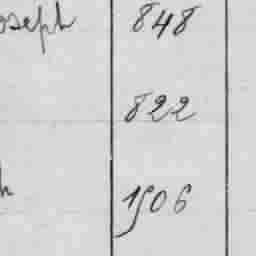 oseph 848
822
h 1506